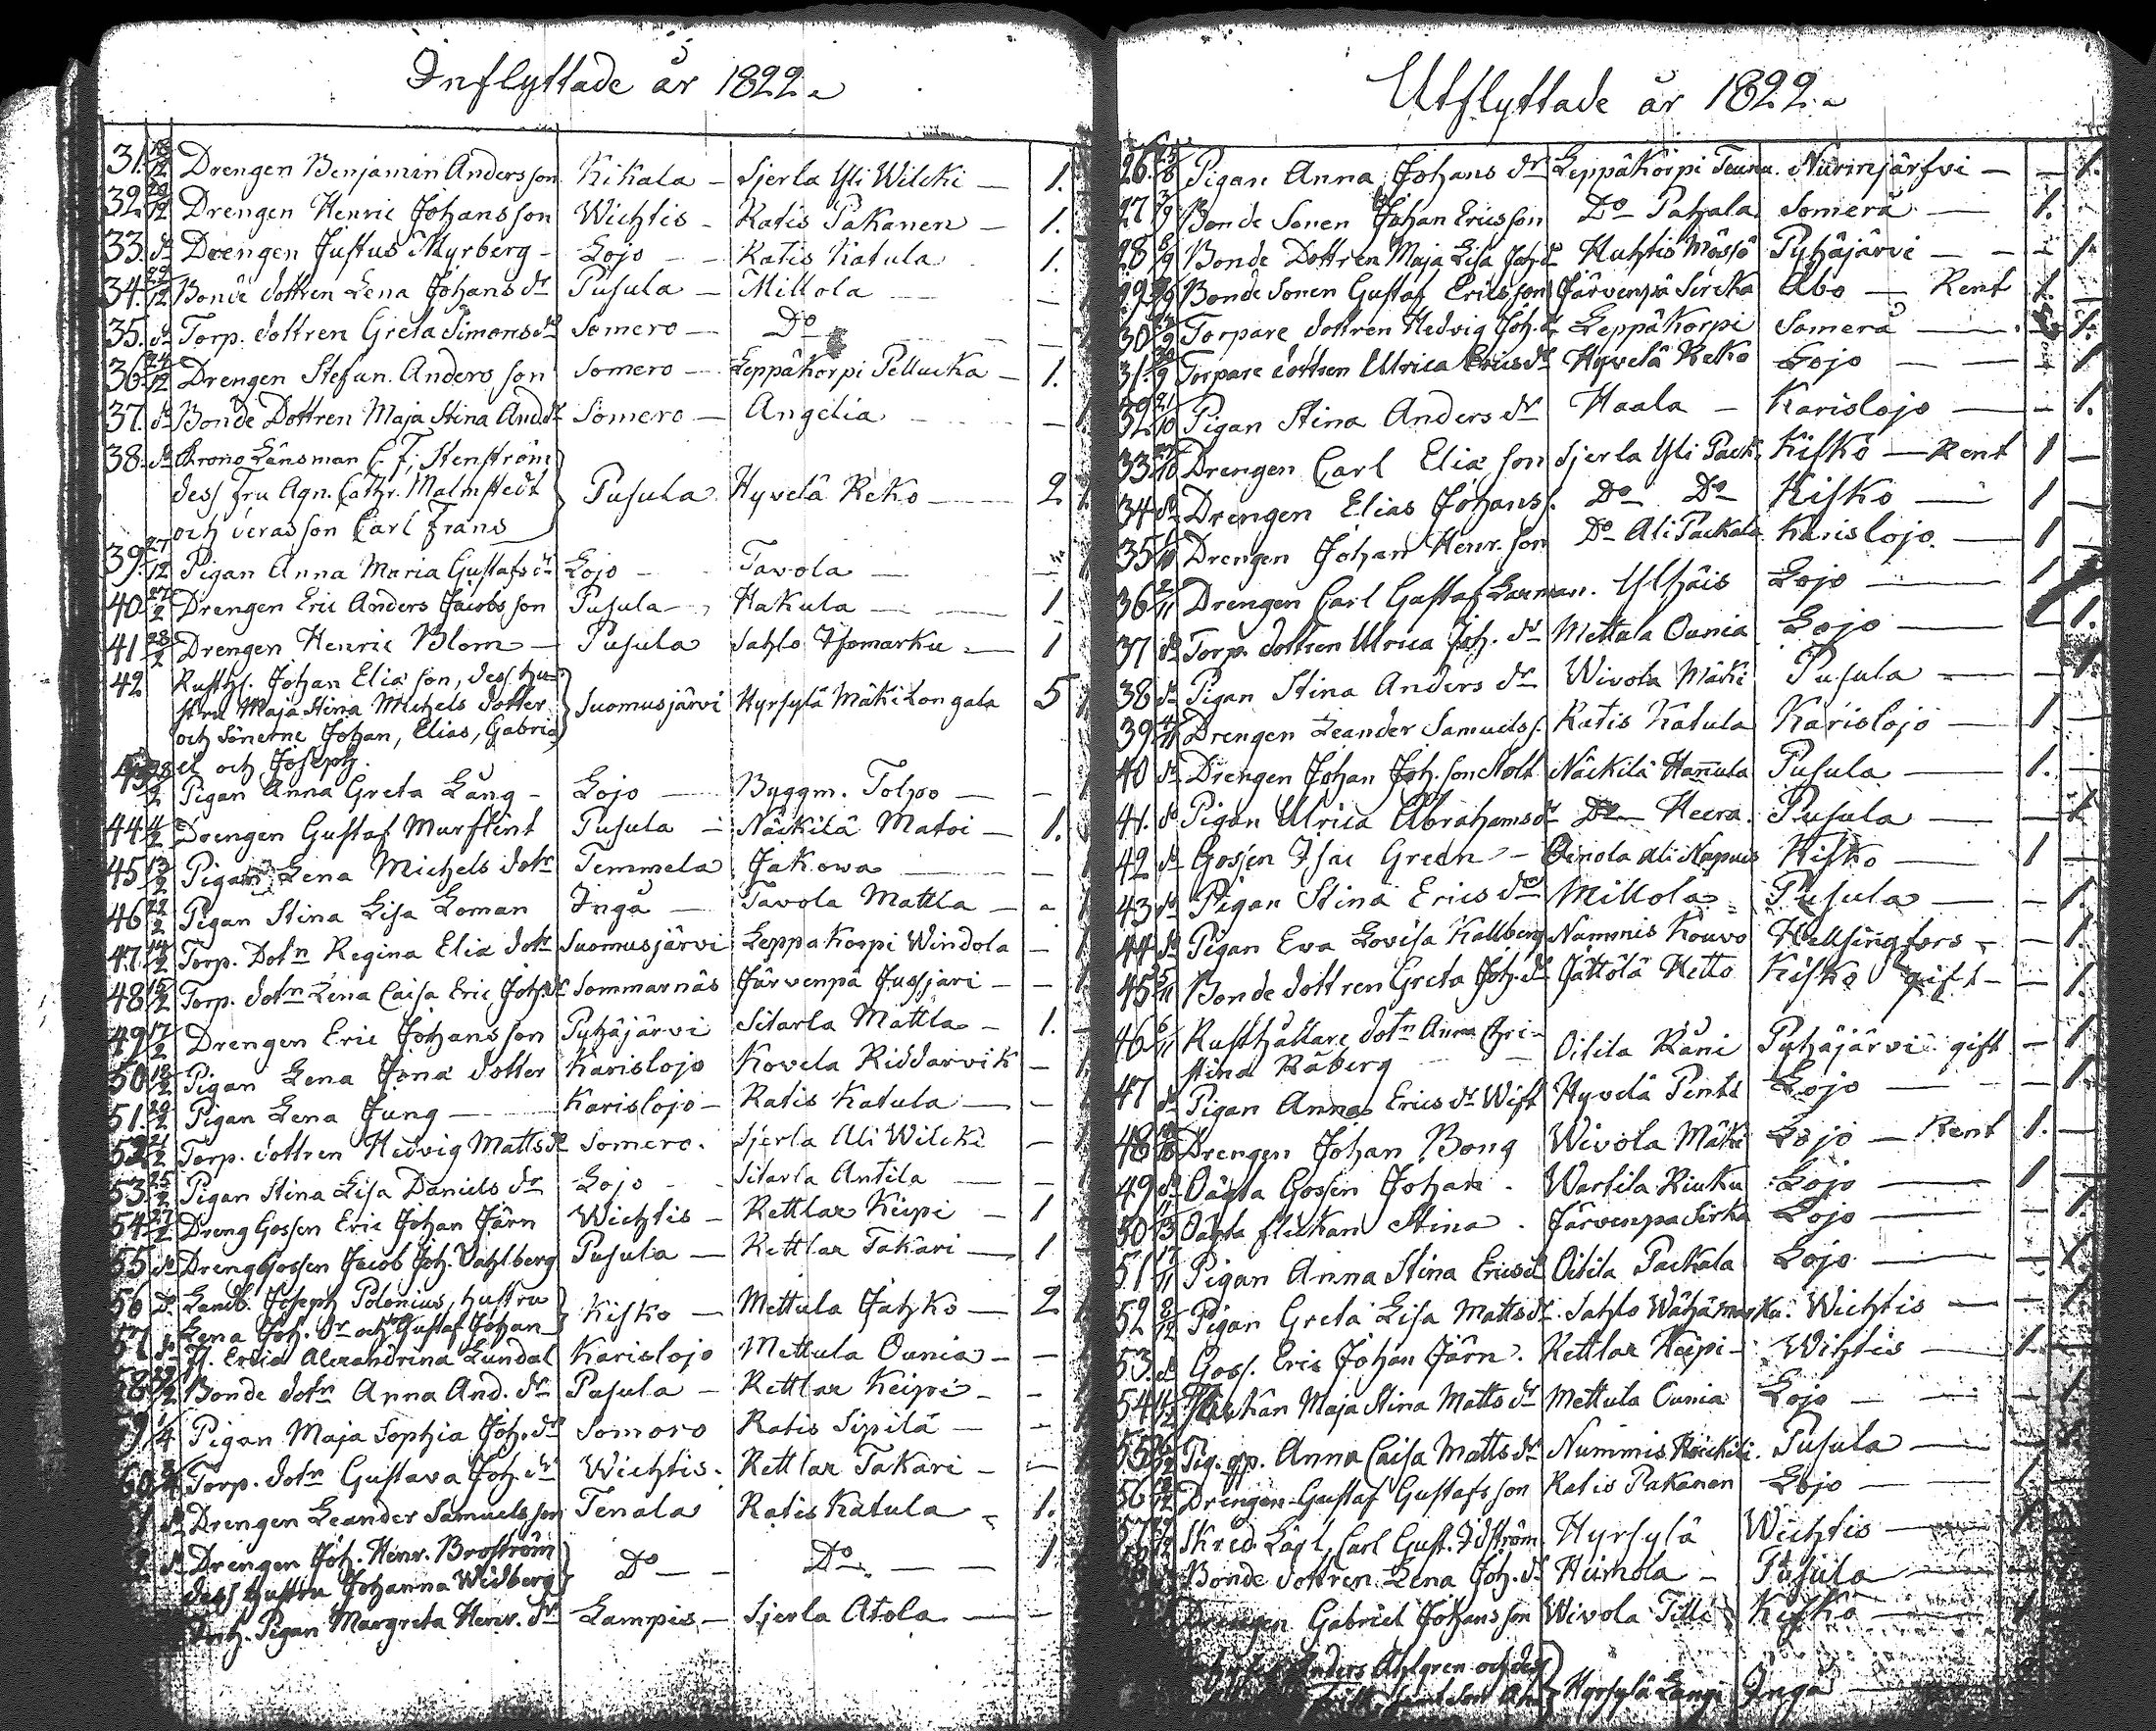 Inflyttade år 1822
31. 18/12 Drengen Benjamin Andersson Kikala — Sjerla Yli Wilcki — 1.
32. 20/12 Drengen Henric Johansson Wichtis — Katis Pakanen — 1.
33. do Drengen Justus Myrberg — Lojo — Katis Katula 1.
34. 22/12 Bonde dottren Lena Johans dr Pusula — Millola —
35. do Torp. dottren Greta Simons dr Somero — Do
36. 24/12 Drengen Stefan Andersson Somero — Leppäkorpi Pellucka — 1.
37. do Bonde Dottren Maja Stina And. dr Somero — Angelia
38. do Krono Länsman C. F. Stenström
dess Fru Agn. Cathr. Malmstedt Pusula Hyvelä Reko — 2
och deras son Carl Frans
39. 27/12 Pigan Anna Maria Gustafs dr Lojo — Tavola —
40 27/2 Drengen Eric Anders Jacobsson Pusula — Hakula — 1
41 28/2 Drengen Henric Blom — Pusula Sahlo Isomarku — 1
42 Rusth. Johan Eliæ son, dess hu-
stru Maja Stina Michels dotter Suomusjärvi Hyrsylä Mäkilongala 5
och Sönerne Johan, Elias, Gabri-
el och Joseph.
43 Pigan Anna Greta Lång — Lojo — Byggm. Tolpo —
44 4/2 Drengen Gustaf Murflint Pusula — Näckilä Matoi — 1.
45 13/2 Pigan Lena Michels dotr Temmela Jakowa
46 22/2 Pigan Stina Lisa Loman Ingå — Tavola Mattla —
47. 14/2 Torp. Dotn Regina Eliæ dotr Suomusjärvi Leppäkorpi Windola —
48 15/2 Torp. dotn Lena Caisa Eric Joh. dr Sommarnäs Järvenpä Jussjari —
49 17/2 Drengen Eric Johansson Pyhäjärvi Sitarla Mattla — 1.
50 18/2 Pigan Lena Jona dotter Karislojo Kovela Riddarvik —
51. 20/2 Pigan Lena Jung — Karislojo — Katis Katula —
52 21/2 Torp. dottren Hedvig Matts dr Somero. Sjerla Ali Wilcki —
53 25/2 Pigan Stina Lisa Daniels dr Lojo — Sitarla Antila —
54 27/2 Dreng Gossen Eric Johan Järn Wichtis — Rettlax Keipi — 1
55 do Dreng Gossen Jacob Joh. Dahlberg Pusula — Rettlax Takari — 1
56 do Landb. Joseph Polonius, hustru
Lena Joh. dr och Gustaf Johan Kisko — Mettula Jahko — 2
57 do Fl. Erica Alexandrina Lundal Karislojo Mettula Ounia —
58 Bonde dotn Anna And. dr Pusula — Rettlax Keipi —
9 1/4 Pigan Maja Sophia Joh. dr Somero Katis Sipilä —
60 Torp. dotn Gustava Joh. dr Wichtis. Rettlax Takari —
1 do Drengen Leander Samuelsson Tenala Katis Katula 1.
2 do Drengen Joh. Henr. Broström
dess hustru Johanna Widberg Do — Do — 1.
Inh. Pigan Margreta Henr. dr Lampis — Sjerla Atola —
Utflyttade år 1822
26. Pigan Anna Johans dr Leppäkorpi Nurmjärfvi — 1.
27 Bonde Sonen Johan Ericsson Do Pahala Somerå — 1.
28 6/9 Bonde Dottren Maja Lisa Joh. dr Huhtis Mössö Pyhäjärvi — 1.
29 Bonde Sonen Gustaf Ericsson Järvenpä Sircka Åbo — Rent 1.
30 Torpare dottren Hedvig Joh. dr Leppäkorpi Somerå — 1.
31. 30/9 Torpare dottren Ulrica Erics dr Hyvelä Reko Lojo — 1
32 21/10 Pigan Stina Anders dr Haala — Karislojo — 1.
33 Drengen Carl Eliæ son Sjerla Yli Pack. Kisko — Rent 1
34 do Drengen Elias Johanss. Do Do Kisko — 1
35 Drengen Johan Henr. son Do Ali Packala Karislojo — 1
36 2/11 Drengen Carl Gustaf Larman. Ylhäis Lojo — 1
37 do Torp. dottren Ulrica Joh. dr Mettula Ounia Lojo — 1.
38 do Pigan Stina Anders dr Wivola Mäki Pusula — 1.
39. 4/11 Drengen Leander Samuelss. Katis Katula Karislojo — 1
40 do Drengen Johan Joh. son Stolt Näckilä Hannula Pusula — 1.
41. do Pigan Ulrica Abrahams dr Do — Heera. Pusula — 1
42 do Gossen Isac Green — Oinola Ali Napuis Kisko — 1
43 do Pigan Stina Erics dr Millola Pusula — 1.
44 do Pigan Eva Lovisa Kallberg Nummis Kouvo Hellsingfors — 1.
45 5/11 Bonde dottren Greta Joh. dr Jättölä Hetto Kisko gift — 1.
46 6/11 Rusthållare dotn Anna Chri-
stina Råberg Oitila Råni Pyhäjärvi gift — 1
47 do Pigan Anna Erics dr Wist Hyvelä Pentt Lojo — 1.
48 Drengen Johan Bong Wivola Mäki Lojo — Rent 1.
49 do Oägta Gossen Johan. Wartila Riuku Lojo — 1
50 Oägta flickan Stina. Järvenpä Sirka Lojo — 1.
51 17/11 Pigan Anna Stina Erics dr Oitila Packala Lojo — 1
52 2/12 Pigan Greta Lisa Matts dr. Sahlo Wähämarku. Wichtis — 1
53. do Goss. Eric Johan Järn. Rettlax Keipi — Wihtis — 1.
54 Flickan Maja Stina Matts dr Mettula Ounia Lojo — 1.
55 Pig. op. Anna Caisa Matts dr Nummis Pusula — 1
56 Drengen Gustaf Gustafsson Katis Pakanen Lojo — 1.
Skred. Lärl. Carl Gust. Idström Hyrsylä Wichtis — 1
Bonde dottren Lena Joh. dr Heimola — Pusula
Drengen Gabriel Johansson Wivola Tilli Kisko — 1
Anders Ahlgren och dess
Hyrsylä Långi Ingå —